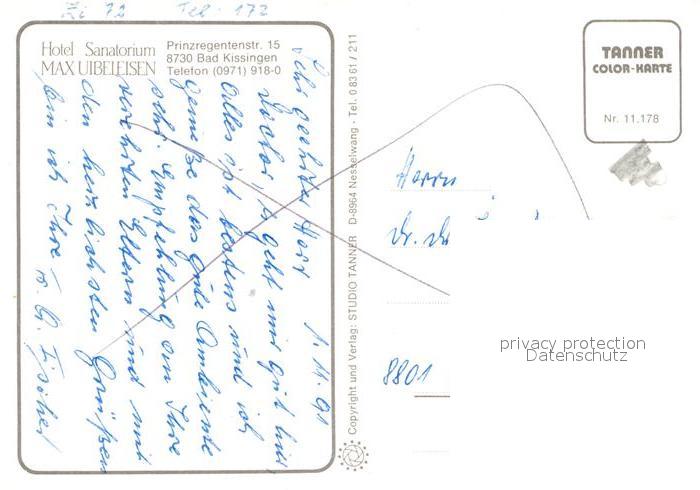 Zi 72 Tel. 172
Hotel Sanatorium
MAX UIBELEISEN
Prinzregentenstr. 15
8730 Bad Kissingen
Telefon (0971) 918-0
1. 11. 91
Sehr geehrter Herr
Doctor, es geht mir gut hier,
alles ist bestens und ich
genieße das gute Ambiente
sehr. Empfehlung an Ihre
verehrten Eltern und mit
den herzlichsten Grüßen
bin ich Ihre
Fischer
Copyright und Verlag: STUDIO TANNER D-8964 Nesselwang - Tel. 0 83 61 / 211
TANNER
COLOR-KARTE
Nr. 11.178
Herrn
Dr. Dr
8801
privacy protection
Datenschutz